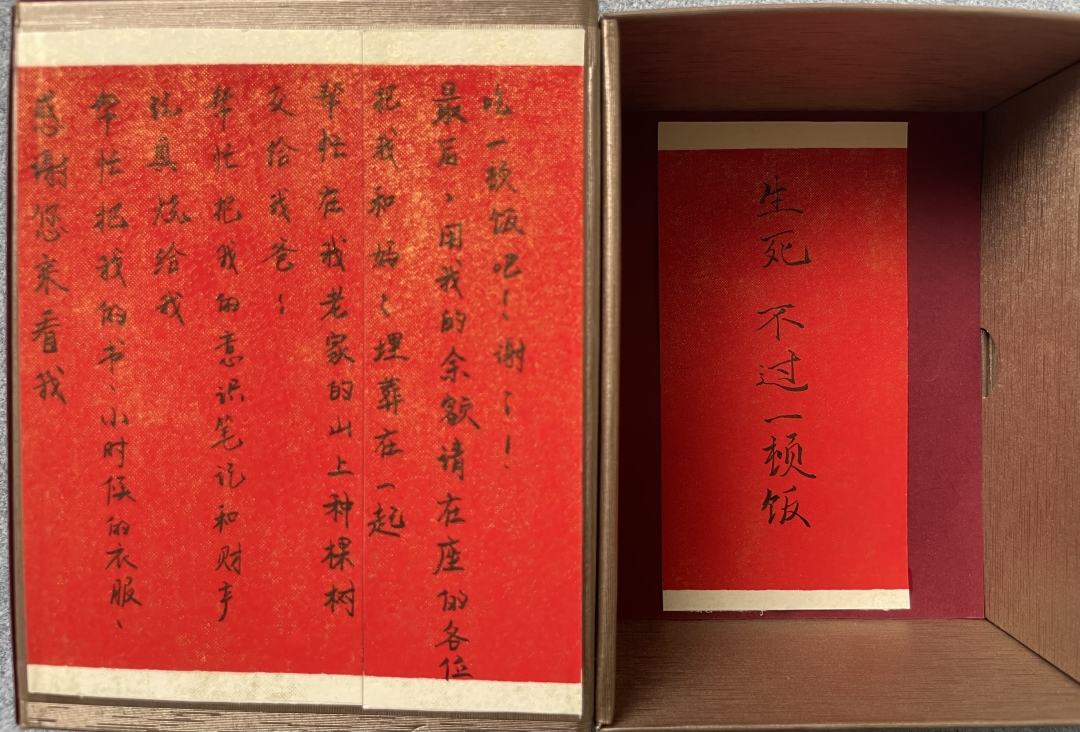 感谢您来看我
帮忙把我的书、小时候的衣服、
玩具烧给我
帮忙把我的意识笔记和财产
交给我爸〻
帮忙在我老家的山上种棵树
把我和妈〻埋葬在一起
最后、用我的余额请在座的各位
吃一顿饭吧！谢〻！
生死 不过一顿饭